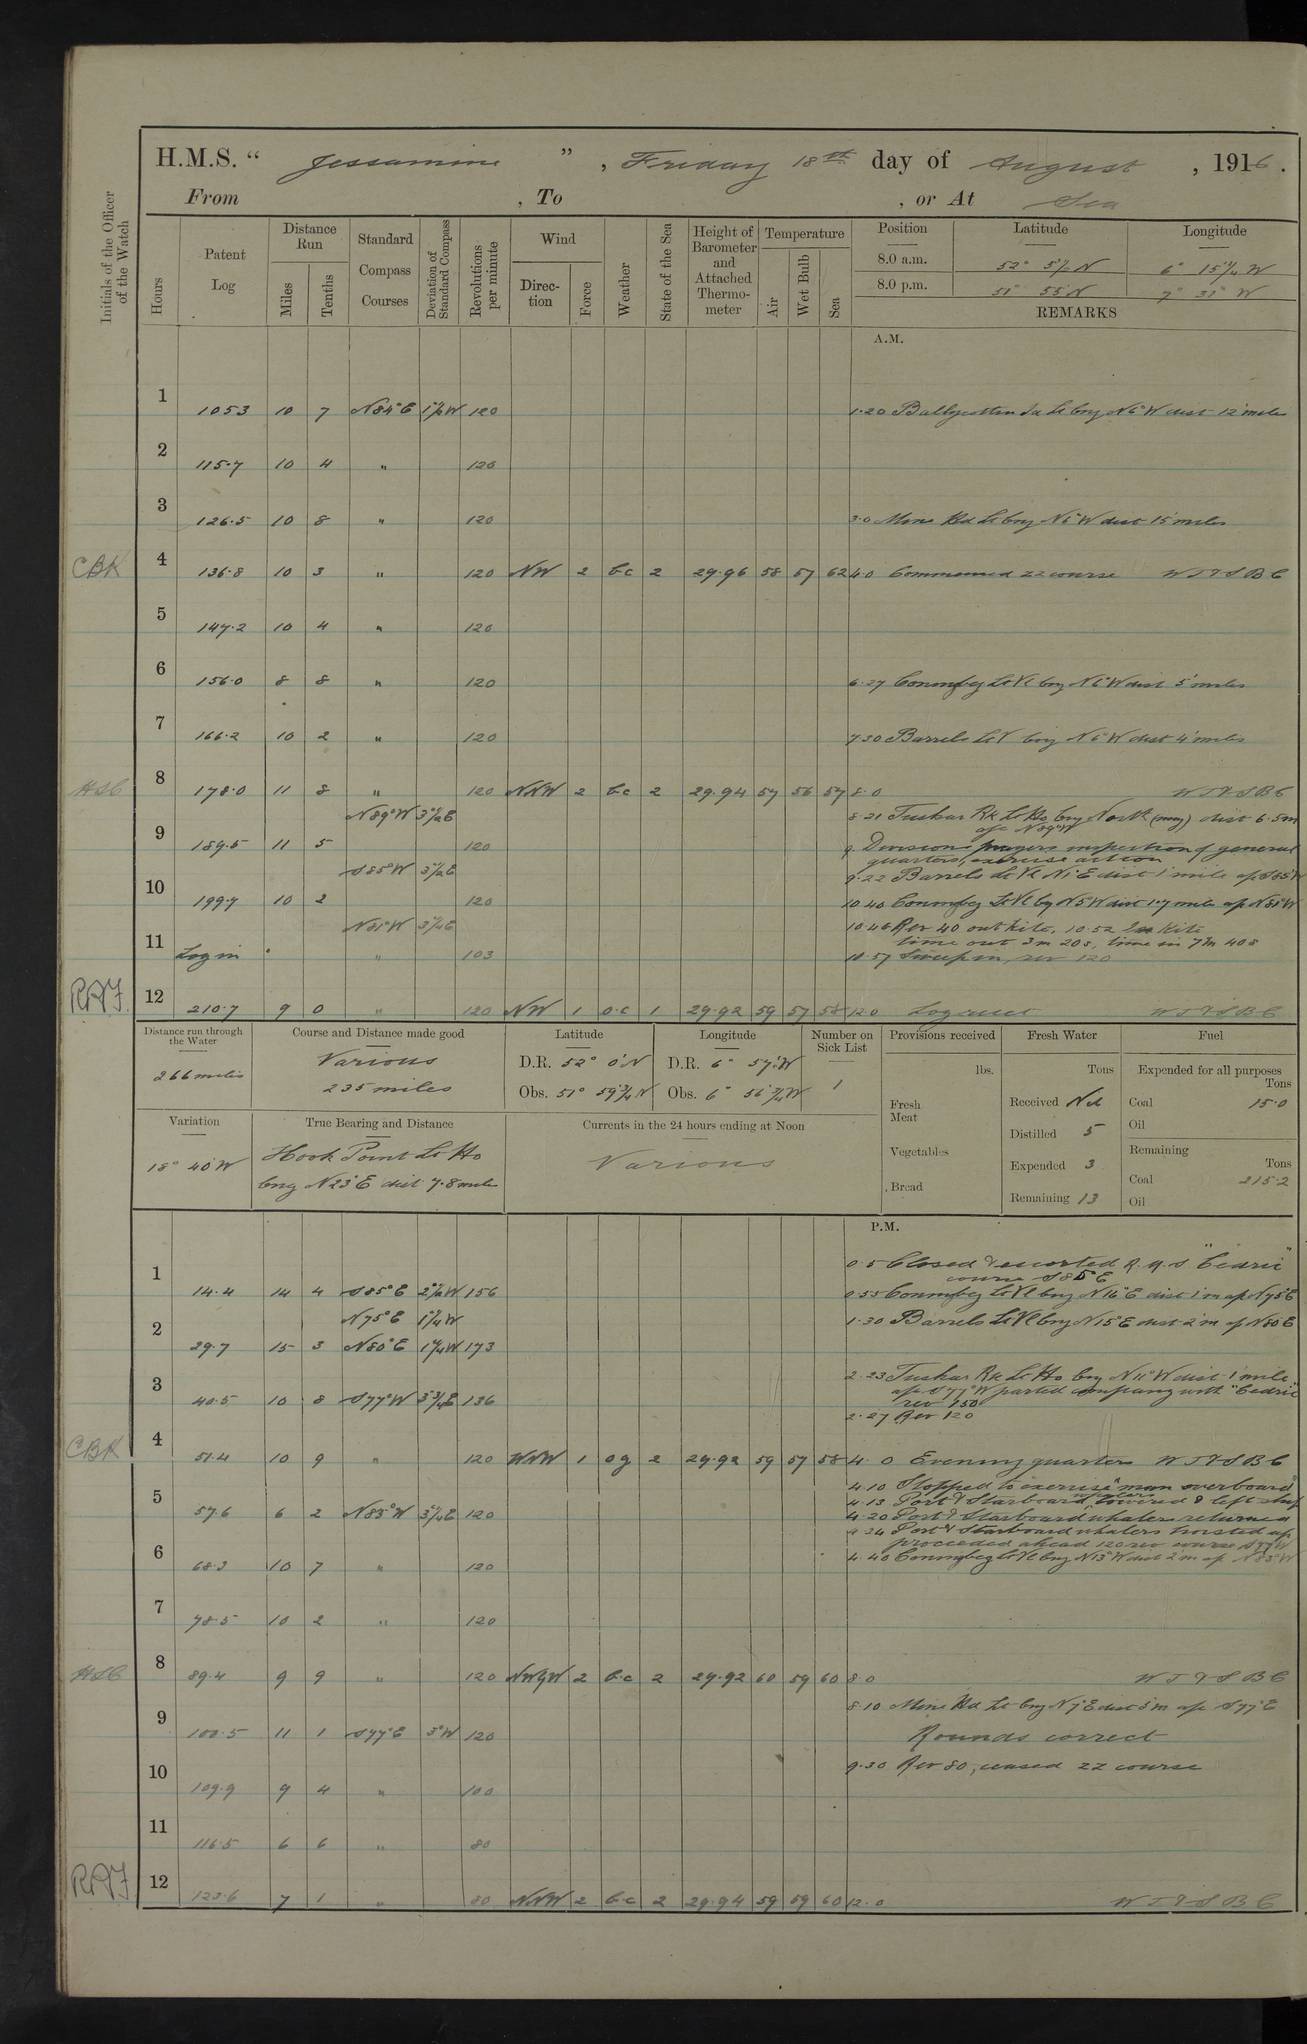 H.M.S. “ Jessamine ” , Friday 18th day of August , 1916 .
From , To , or At Sea
Initials of the Officer of the Watch
Hours
Patent Log
Distance Run
Miles
Tenths
Standard Compass Courses
Deviation of Standard Compass
Revolutions per minute
Wind
Direction
Force
Weather
State of the Sea
Height of Barometer and Attached Thermometer
Temperature
Air
Wet Bulb
Sea
Position Latitude Longitude
8.0 a.m. 52° 5½ N 6° 15¼ W
8.0 p.m. 51° 55 N 7° 31 W
REMARKS
A.M.
1 105.3 10 7 N84°E 1½W 120 1.20 Ballycotton Id Lt brg N6°W dist 12 miles
2 115.7 10 4 " 120
3 126.5 10 8 " 120 3.0 Mine Hd Lt brg N6°W dist 15 miles
CBK 4 136.8 10 3 " 120 NW 2 b.c 2 29.96 58 57 62 4.0 Commenced zz course W T & S B C
5 147.2 10 4 " 120
6 156.0 8 8 " 120 6.27 Coningbeg Lt Vl brg N6°W dist 5 miles
7 166.2 10 2 " 120 7.30 Barrels Lt V brg N6°W dist 4 miles
HSC 8 178.0 11 8 " 120 NNW 2 b.c 2 29.94 57 56 57 8.0 W T & S B C
N89°W 3½E 8.21 Tuskar Rk Lt Ho brg North (mag) dist 6.5m
a/c N89°W
9 189.5 11 5 120 9. Divisions prayers inspection of general
quarters, exercise action
S85°W 3½E 9.22 Barrels Lt Vl N1°E dist 1 mile a/c S85°W
10 199.7 10 2 120 10.40 Coningbeg Lt Vl bg N5°W dist 1.7 miles a/c N81°W
N81°W 3¼E 10.46 Rev 40 out kite, 10.52 In Kite
time out 3m 20s, time in 7m 40s
11 Log in " 103 10.57 Sweep in, rev 120
RAJ 12 210.7 9 0 " 120 NW 1 o.c 1 29.92 59 57 58 12.0 Log reset W T & S B C
Distance run through the Water
266 miles
Course and Distance made good
Various
235 miles
Latitude
D.R. 52° 0' N
Obs. 51° 59¾ N
Longitude
D.R. 6° 57' W
Obs. 6° 56¾ W
Number on Sick List
1
Provisions received
lbs.
Fresh Meat
Vegetables
Bread
Fresh Water
Tons
Received Nil
Distilled 5
Expended 3
Remaining 13
Fuel
Expended for all purposes
Tons
Coal 15.0
Oil
Remaining
Tons
Coal 215.2
Oil
Variation
18° 40' W
True Bearing and Distance
Hook Point Lt Ho
brg N23°E dist 7.8 miles
Currents in the 24 hours ending at Noon
Various
P.M.
0.5 Closed & escorted R.M.S "Cedric"
course S85E
1 14.4 14 4 S85°E 2½W 156 0.55 Coningbeg Lt Vl brg N14°E dist 1m a/c N75°E
N75°E 1¼W 1.30 Barrels Lt Vl brg N15°E dist 2 m a/c N80E
2 29.7 15 3 N80°E 1¼W 173
2.23 Tuskar Rk Lt Ho brg N11°W dist 1 mile
3 40.5 10 8 S77°W 3¾E 136 a/c S77°W parted company with "Cedric"
rev 150
2.27 Rev 120
CBK 4 51.4 10 9 " 120 WNW 1 og 2 29.92 59 57 58 4.0 Evening quarters W T & S B C
4.10 Stopped to exercise "man overboard"
4.13 Port & Starboard whalers lowered & left ship
5 57.6 6 2 N85°W 3¼E 120 4.20 Port & Starboard whalers returned
4.24 Port & Starboard whalers hoisted up
proceeded ahead 120 rev course S77W
6 68.3 10 7 " 120 4.40 Coningbeg Lt Vl brg N13°W dist 2 m a/c N85°W
7 78.5 10 2 " 120
HSC 8 89.4 9 9 " 120 NWbyW 2 b.c 2 29.92 60 59 60 8.0 W T & S B C
8.10 Mine Hd Lt brg N7°E dist 5 m a/c S77°E
9 100.5 11 1 S77°E 3°W 120 Rounds correct
10 109.9 9 4 " 100 9.30 Rev 80, ceased zz course
11 116.5 6 6 " 80
RAJ 12 123.6 7 1 " 80 NNW 2 b.c 2 29.94 59 59 60 12.0 W T & S B C